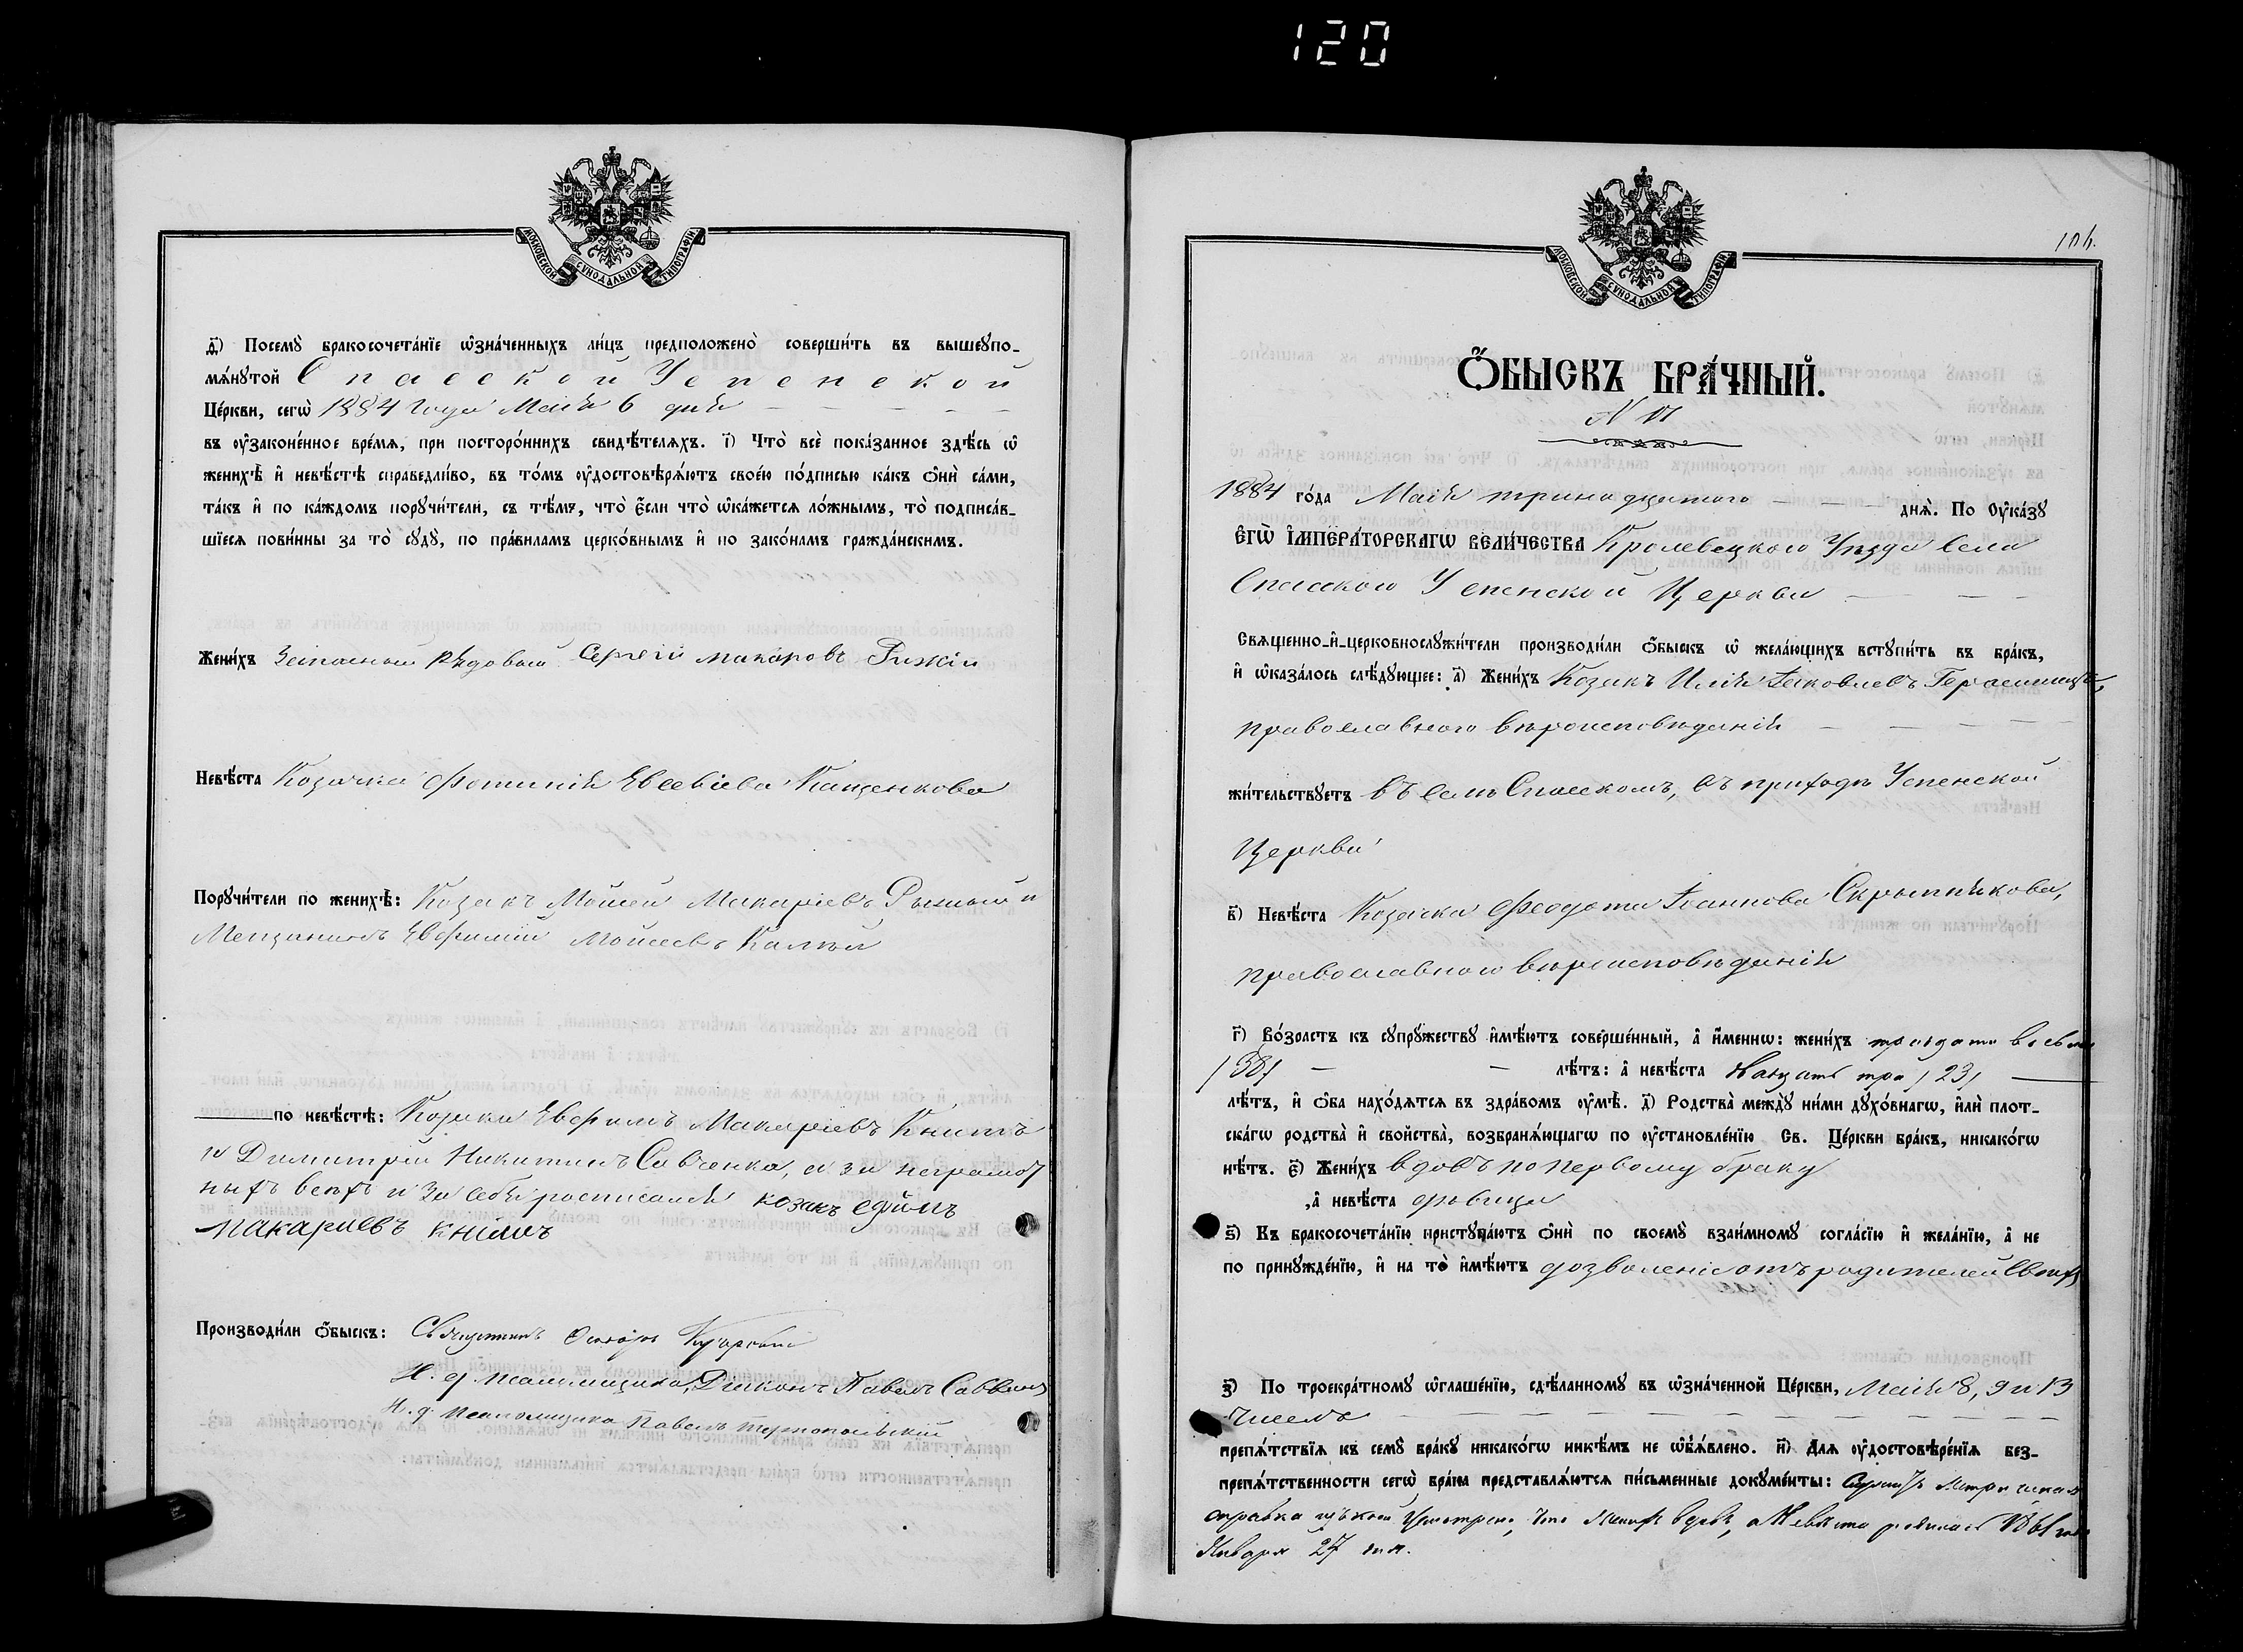 120
МОСКОВСКОЙ СУНОДАЛЬНОЙ ТИПОГРАФІИ.
д҃) Посемꙋ̀ бракосочета́нїе ѡ҆зна́ченныхъ ли́цъ предположено̀ соверши́ть въ вышеꙋпо-
мѧ́нꙋтой Спасской Успенской
Це́ркви, сегѡ̀ 1884 года Маія 6 дня
въ ᲂу҆законе́нное вре́мѧ, при посторо́ннихъ свидѣ́телѧхъ. і҃) Что̀ всѐ пока́занное здѣ́сь ѡ҆
женихѣ̀ и҆ невѣ́стѣ справедли́во, въ то́мъ ᲂу҆достовѣрѧ́ютъ свое́ю по́дписью ка́къ ѻ҆нѝ са́ми,
та́къ и҆ по ка́ждомъ порꙋчи́тели, съ тѣ́мъ, что̀ є҆́сли что̀ ѡ҆ка́жетсѧ ло́жнымъ, то̀ подписа́в-
шїесѧ пови́нны за то̀ сꙋдꙋ̀, по пра́виламъ церко́внымъ и҆ по зако́намъ гражда́нскимъ.
Жени́хъ Запасный Рядовый Сергій Макаровъ Рижкій
Невѣ́ста Козачка Фотинія Евсевіева Кащенкова
Порꙋчи́тели по женихѣ̀: Козакъ Мойсей Макаріевъ Рыжый и
Мещанинъ Евфимій Мойсеевъ
по невѣ́стѣ: Козаки Евфимъ Макаріевъ Книшъ
и Димитрій Никитинъ Савченко, а за неграмот
ныхъ всѣхъ и за себя росписался козакъ ефимъ
макариевъ книшъ
Производи́ли ѻ҆́быскъ: Священникъ
И. д. псаломщика, Діаконъ Павелъ Саввинъ
И. д. псаломщика Павелъ Тернопольскій
МОСКОВСКОЙ СУНОДАЛЬНОЙ ТИПОГРАФІИ.
Ѻ҆́БЫСКЪ БРА́ЧНЫЙ.
N 17
1884 го́да Маія тринадцатого днѧ̀. По ᲂу҆ка́зꙋ
Є҆гѡ̀ І҆мпера́торскагѡ вели́чества Кролевецкого Уѣзда села
Спасского Успенской Церкви
Свѧще́нно-и҆-церковнослꙋжи́тели производи́ли ѻ҆́быскъ ѡ҆ жела́ющихъ встꙋпи́ть въ бра́къ,
и҆ ѡ҆каза́лось слѣ́дꙋющее: а҃) Жени́хъ Козакъ Илія Іаковлевъ
православного вѣроисповѣданія
жи́тельствꙋетъ въ селѣ Спасскомъ, въ приходѣ Успенской
Церкви
в҃) Невѣ́ста Козачка Феодота Іоаннова Скрыпникова,
православного вѣроисповѣданія
г҃) Во́зрастъ къ сꙋпрꙋ́жествꙋ и҆мѣ́ютъ соверше́нный, а҆ и҆́меннѡ: жени́хъ тридцати восьми
/38/ лѣ́тъ: а҆ невѣ́ста двацать три /23/
лѣ́тъ, и҆ ѻ҆́ба нахо́дѧтсѧ въ здра́вомъ ᲂу҆мѣ̀. д҃) Родства̀ мєждꙋ̀ ни́ми дꙋхо́внагѡ, и҆лѝ плот-
ска́гѡ родства̀ и҆ сво́йства, возбранѧ́ющагѡ по ᲂу҆становле́нїю Св. Це́ркви бра́къ, никако́гѡ
нѣ́тъ. є҃) Жени́хъ вдовъ по первому браку
,а҆ невѣ́ста дѣвица
ѕ҃) Къ бракосочета́нїю пристꙋпа́ютъ ѻ҆нѝ по своемꙋ̀ взаи́мномꙋ согла́сїю и҆ жела́нїю, а҆ не
по принꙋжде́нїю, и҆ на то̀ и҆мѣ́ютъ дозволеніе отъ родителей своихъ
з҃) По троекра́тномꙋ ѡ҆глаше́нїю, сдѣ́ланномꙋ въ ѡ҆зна́ченной Це́ркви, Маія 8, 9 и 13
чиселъ
препѧ́тствїѧ къ семꙋ̀ бра́кꙋ никако́гѡ никѣ́мъ не ѡ҆б̾ѧ́влено. и҃) Длѧ ᲂу҆достовѣре́нїѧ без-
препѧ́тственности сегѡ̀ бра́ка представлѧ́ютсѧ пи́сьменные докꙋме́нты:
справка что Женихъ вдовъ, а Невѣста родилась 1861 года
Января 27 дня.